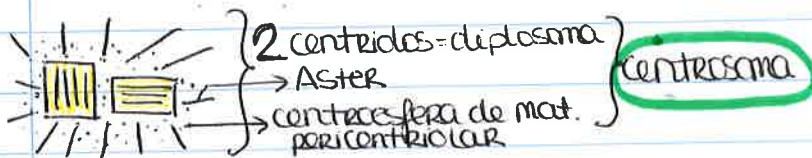 2 centriolos = diplosoma
Aster
centroesfera de mat.
pericentriolar
centrosoma